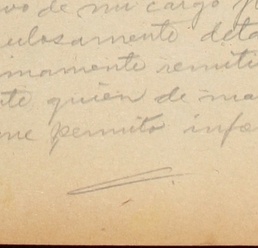 vo de mi cargo
ulosamente deta
imamente remiti
te quien de ma
me permito info